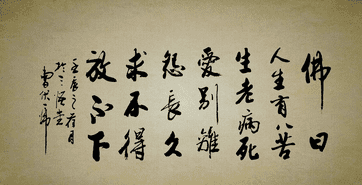 佛曰
人生有八苦
生老病死
愛别離
怨長久
求不得
放不下
壬辰之荷月